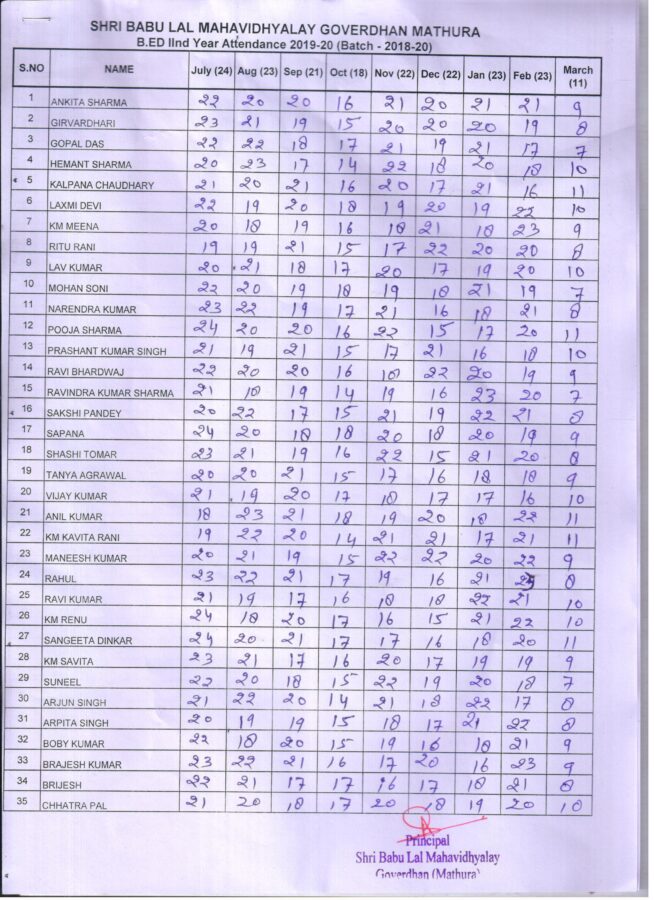 SHRI BABU LAL MAHAVIDHYALAY GOVERDHAN MATHURA
B.ED IInd Year Attendance 2019-20 (Batch - 2018-20)
S.NO NAME July (24) Aug (23) Sep (21) Oct (18) Nov (22) Dec (22) Jan (23) Feb (23) March (11)
1 ANKITA SHARMA 22 20 20 16 21 20 21 21 9
2 GIRVARDHARI 23 21 19 15 20 20 20 19 8
3 GOPAL DAS 22 22 18 17 21 19 21 17 7
4 HEMANT SHARMA 20 23 17 14 22 18 20 18 10
5 KALPANA CHAUDHARY 21 20 21 16 20 17 21 16 11
6 LAXMI DEVI 22 19 20 18 19 20 19 22 10
7 KM MEENA 20 18 19 16 18 21 18 23 9
8 RITU RANI 19 19 21 15 17 22 20 20 8
9 LAV KUMAR 20 21 18 17 20 17 19 20 10
10 MOHAN SONI 22 20 19 18 19 18 21 19 7
11 NARENDRA KUMAR 23 22 19 17 21 16 18 21 8
12 POOJA SHARMA 24 20 20 16 22 15 17 20 11
13 PRASHANT KUMAR SINGH 21 19 21 15 17 21 16 18 10
14 RAVI BHARDWAJ 22 20 20 16 18 22 20 19 9
15 RAVINDRA KUMAR SHARMA 21 18 19 14 19 16 23 20 7
16 SAKSHI PANDEY 20 22 17 15 21 19 22 21 8
17 SAPANA 24 20 18 18 20 18 20 19 9
18 SHASHI TOMAR 23 21 19 16 22 15 21 20 8
19 TANYA AGRAWAL 20 20 21 15 17 16 18 18 9
20 VIJAY KUMAR 21 19 20 17 18 17 17 16 10
21 ANIL KUMAR 18 23 21 18 19 20 18 22 11
22 KM KAVITA RANI 19 22 20 14 21 21 17 21 11
23 MANEESH KUMAR 20 21 19 15 22 22 20 22 9
24 RAHUL 23 22 21 17 19 16 21 8
25 RAVI KUMAR 21 19 17 16 18 18 22 21 10
26 KM RENU 24 18 20 17 16 15 21 22 10
27 SANGEETA DINKAR 24 20 21 17 17 16 18 20 11
28 KM SAVITA 23 21 17 16 20 17 19 19 9
29 SUNEEL 22 20 18 15 22 19 20 18 7
30 ARJUN SINGH 21 22 20 14 21 18 22 17 8
31 ARPITA SINGH 20 19 19 15 18 17 21 22 8
32 BOBY KUMAR 22 18 20 15 19 16 18 21 9
33 BRAJESH KUMAR 23 22 21 16 17 20 16 23 9
34 BRIJESH 22 21 17 17 16 17 18 21 8
35 CHHATRA PAL 21 20 18 17 20 18 19 20 10
Principal
Shri Babu Lal Mahavidhyalay
Goverdhan (Mathura)